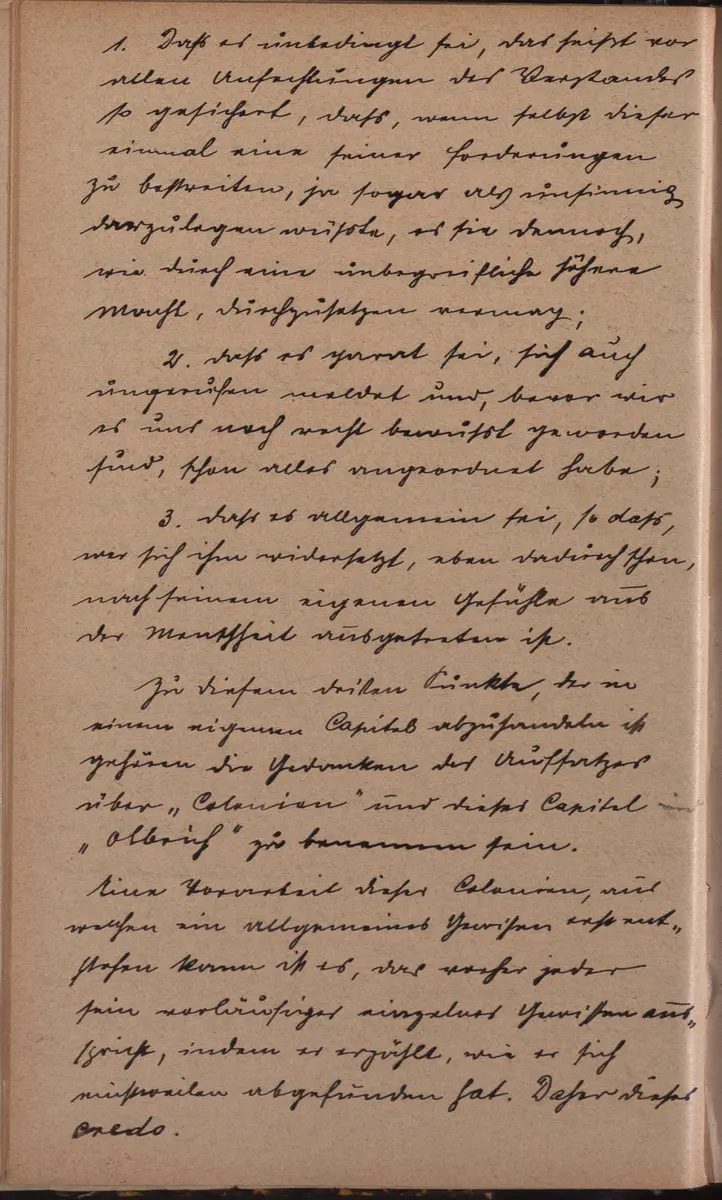 1. Dass es unbedingt sei, das heißt vor
allen Anfechtungen des Verstandes
so gesichert, dass, wenn selbst dieser
einmal eine seiner Forderungen
zu bestreiten, ja sogar als unsinnig
darzulegen wüsste, es sie dennoch,
wie durch eine unbegreifliche höhere
Macht, durchzusetzen vermag;
2. dass es parat sei, sich auch
ungerufen meldet und, bevor wir
es uns noch recht bewusst geworden
sind, schon alles angeordnet habe;
3. dass es allgemein sei, so dass,
wer sich ihm widersetzt, eben dadurch schon,
nach seinem eigenen Gefühle aus
der Menschheit ausgetreten ist.
Zu diesem dritten Punkte, der in
einem eigenen Capitel abzuhandeln ist
gehören die Gedanken des Aufsatzes
über „Colonien" und dieses Capitel wird
„Olbrich" zu benennen sein.
Eine Vorarbeit dieser Colonien, aus
welchen ein allgemeines Gewissen erst ent„
stehen kann ist es, das vorher jeder
sein vorläufiges einzelnes Gewissen aus„
spricht, indem er erzählt, wie er sich
einstweilen abgefunden hat. Daher dieses
credo.